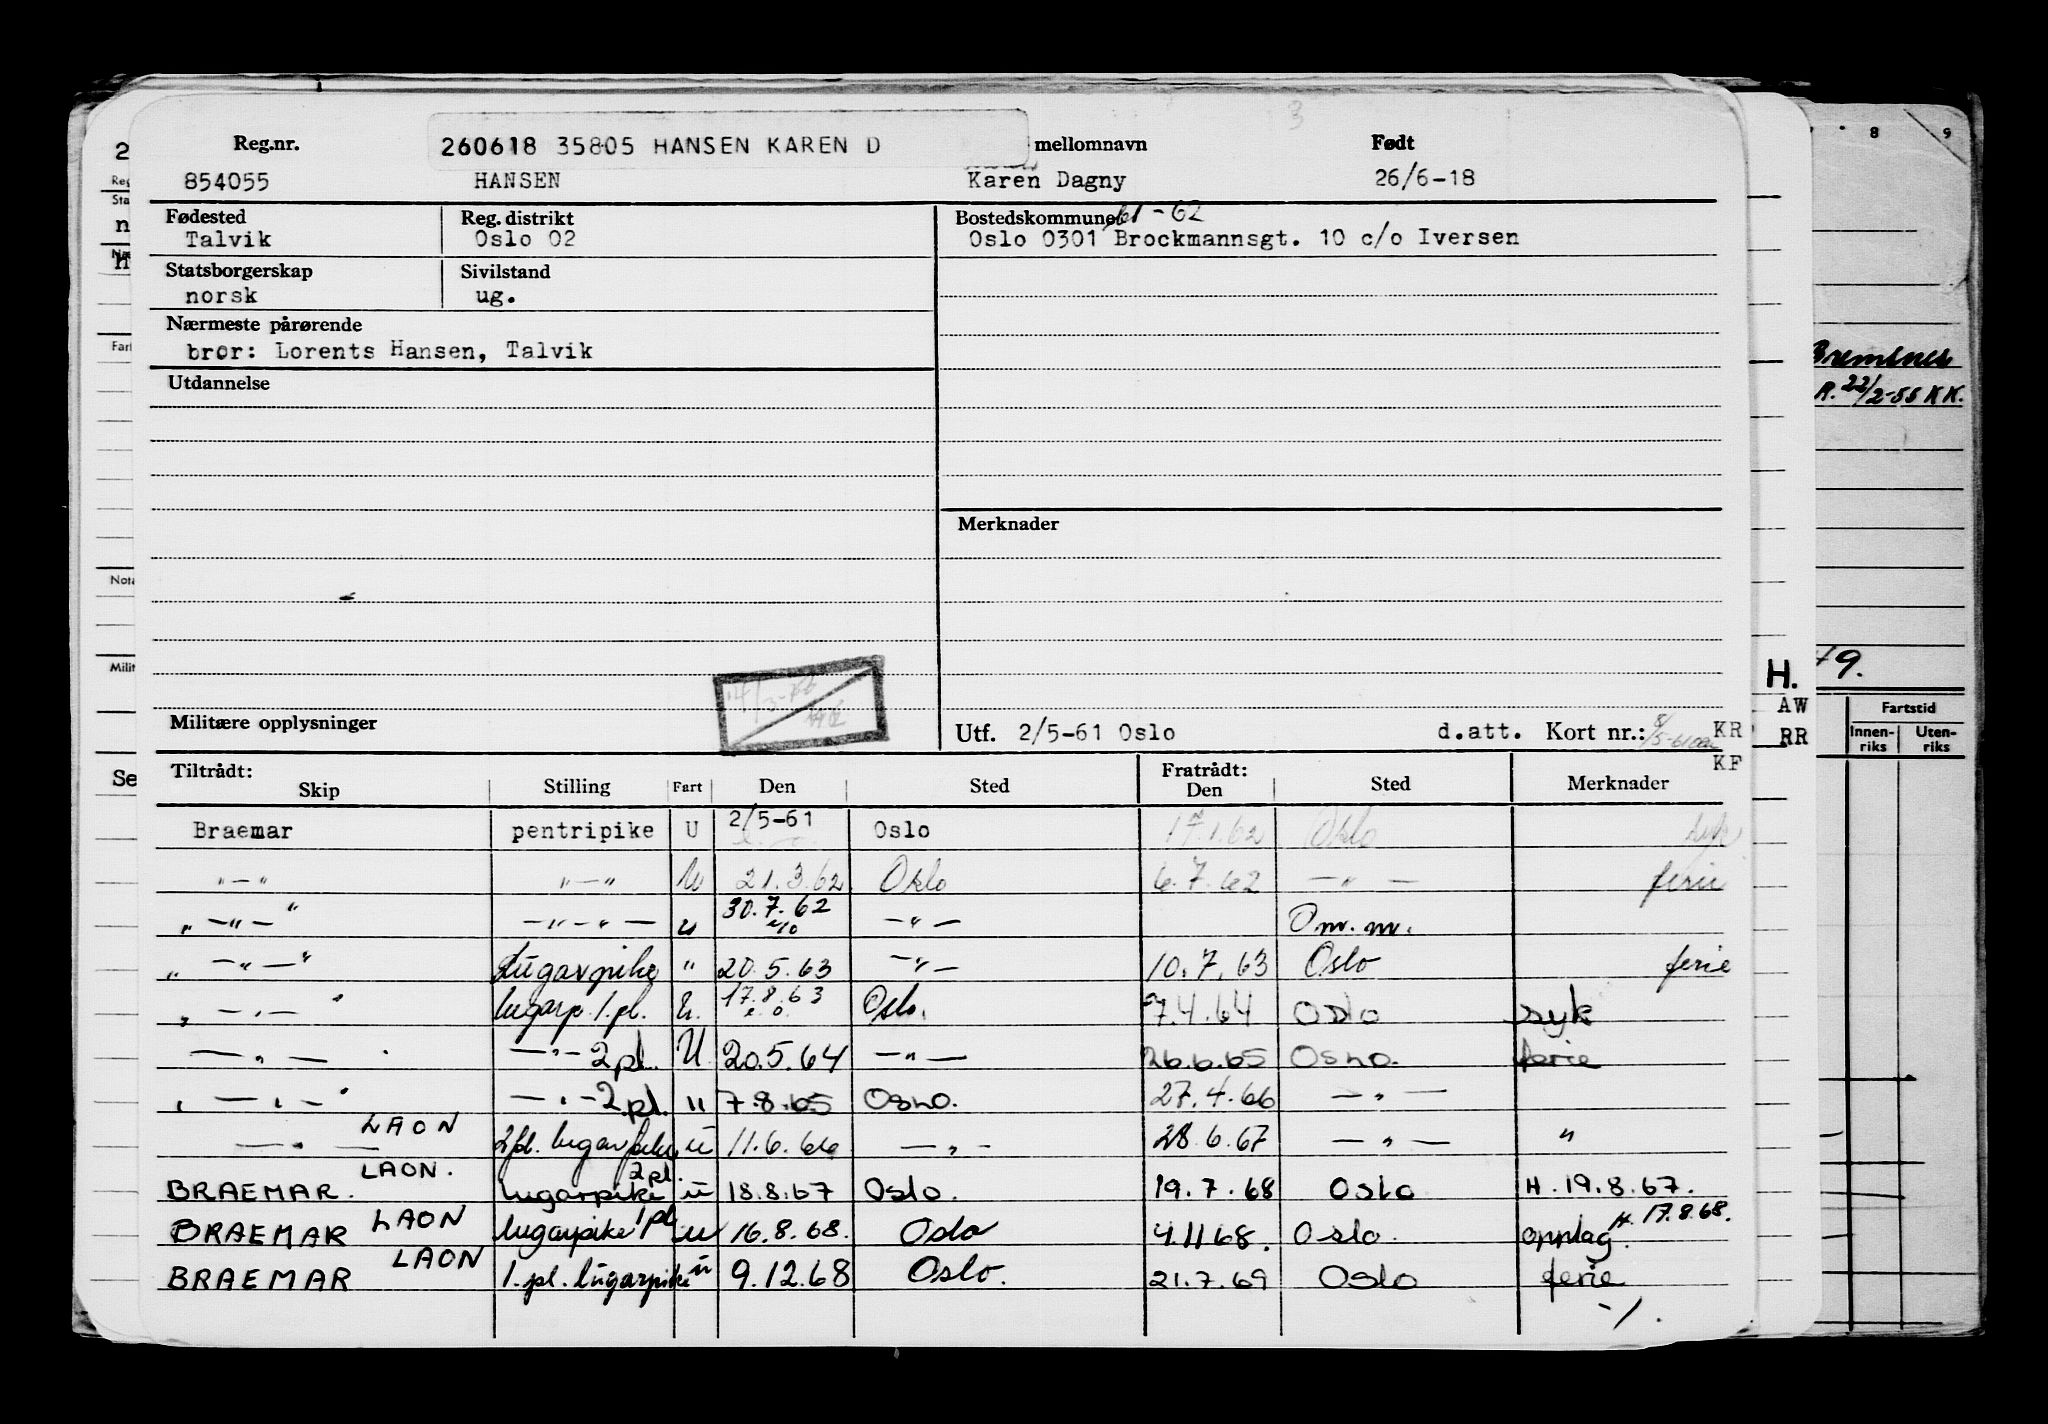 Reg.nr. 260618 35805 HANSEN KAREN D mellomnavn Født
854055 HANSEN Karen Dagny 26/6-18
Fødested Reg. distrikt Bostedskommune 61-62
Talvik Oslo 02 Oslo 0301 Brockmannsgt. 10 c/o Iversen
Statsborgerskap Sivilstand
norsk ug.
Nærmeste pårørende
bror: Lorents Hansen, Talvik
Utdannelse
Merknader
Militære opplysninger Utf. 2/5-61 Oslo d.att. Kort nr.: KR
KF
Tiltrådt: Fratrådt:
Skip Stilling Fart Den Sted Den Sted Merknader
Braemar pentripike U 2/5-61 Oslo 17.1.62 Oslo syk
"-" "-" U 21.3.62 Oslo 6.7.62 -"- ferie
"-"-" -"-"- u 30.7.62 -"- Om.m.
"-"-" Lugarpike " 20.5.63 -"- 10.7.63 Oslo ferie
"-"-" lugarp. 1.pl. U. 17.8.63 Oslo. 7.4.64 Oslo syk
-"- -"-2pl. U 20.5.64 -"- 26.6.65 Oslo. ferie
"-"-" -"-2.pl. " 7.8.65 Oslo. 27.4.66 -"-
-"- LAON 2pl. lugarpike u 11.6.66 -"- 28.6.67 -"- "
BRAEMAR. LAON. lugarpike 2pl. u 18.8.67 Oslo. 19.7.68 Oslo H. 19.8.67.
BRAEMAR LAON lugarpike 1pl u 16.8.68. Oslo 4.11.68. Oslo. opplag. H. 17.8.68.
BRAEMAR LAON 1.pl. lugarpike u 9.12.68 Oslo. 21.7.69 Oslo ferie
-/.
H.
AW
RR
8 9
Bremsnes
R. 22/2-55 KK.
49.
Fartstid
Innen-
riks
Uten-
riks